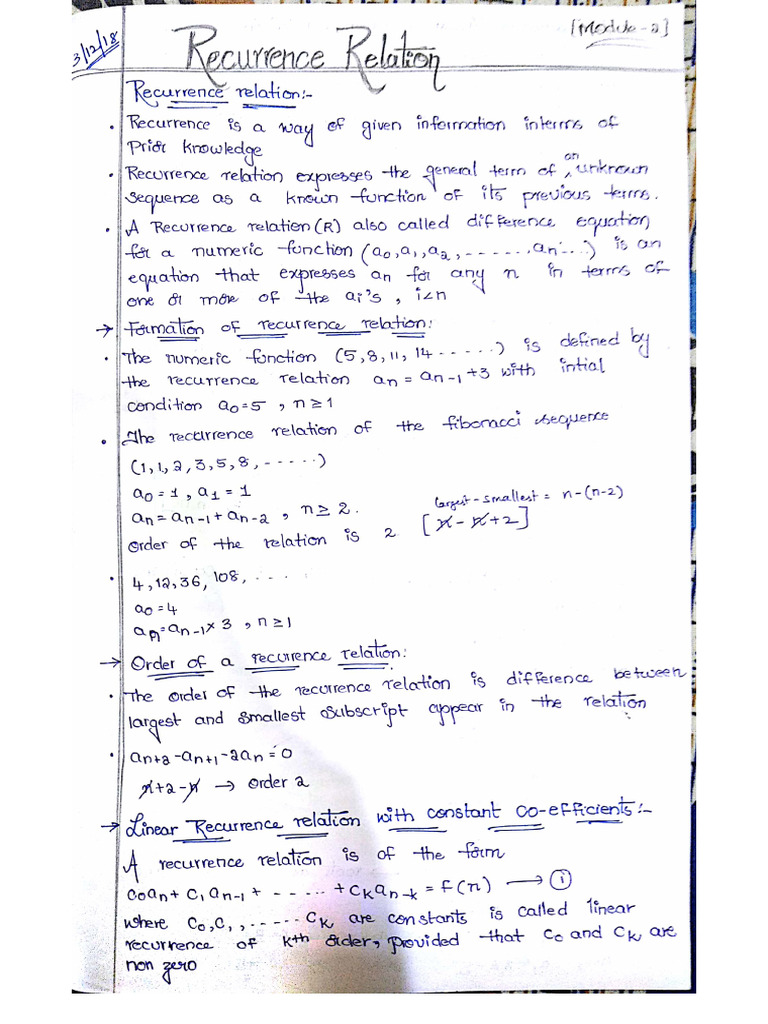 3/12/18
Recurrence Relation
[Module-2]
Recurrence relation:-
• Recurrence is a way of given information interms of
Prior knowledge
• Recurrence relation expresses the general term of an unknown
sequence as a known function of its previous terms.
• A Recurrence relation (R) also called difference equation
for a numeric function (a₀, a₁, a₂, ------, aₙ...) is an
equation that expresses an for any n in terms of
one or more of the aᵢ's, i<n
→ Formation of recurrence relation:
• The numeric function (5, 8, 11, 14 -----) is defined by
the recurrence relation aₙ = aₙ₋₁ + 3 with intial
condition a₀=5, n≥1
• The recurrence relation of the fibonacci sequence
(1, 1, 2, 3, 5, 8, -----)
a₀ = 1, a₁ = 1
aₙ = aₙ₋₁ + aₙ₋₂, n ≥ 2.
largest - smallest = n-(n-2)
Order of the relation is 2 [n - n + 2]
• 4, 12, 36, 108, ....
a₀ = 4
aₙ = aₙ₋₁ × 3, n ≥ 1
→ Order of a recurrence relation:
• The order of the recurrence relation is difference between
largest and smallest subscript appear in the relation
• aₙ₊₂ - aₙ₊₁ - 2aₙ = 0
n+2-n → Order 2
→ Linear Recurrence relation with constant co-efficients:-
A recurrence relation is of the form
c₀aₙ + c₁aₙ₋₁ + ------ + cₖaₙ₋ₖ = f(n) → ①
where C₀, C₁, ------ Cₖ are constants is called linear
recurrence of kth order, provided that C₀ and Cₖ are
non zero